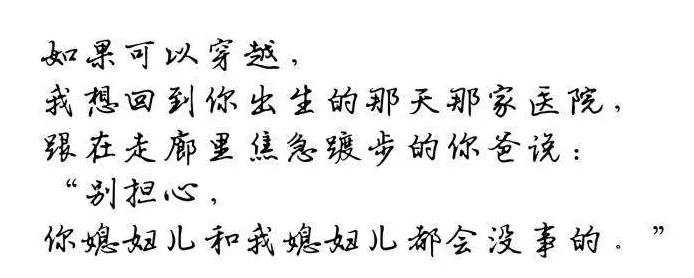 如果可以穿越，
我想回到你出生的那天那家医院，
跟在走廊里焦急踱步的你爸说：
“别担心，
你媳妇儿和我媳妇儿都会没事的。”